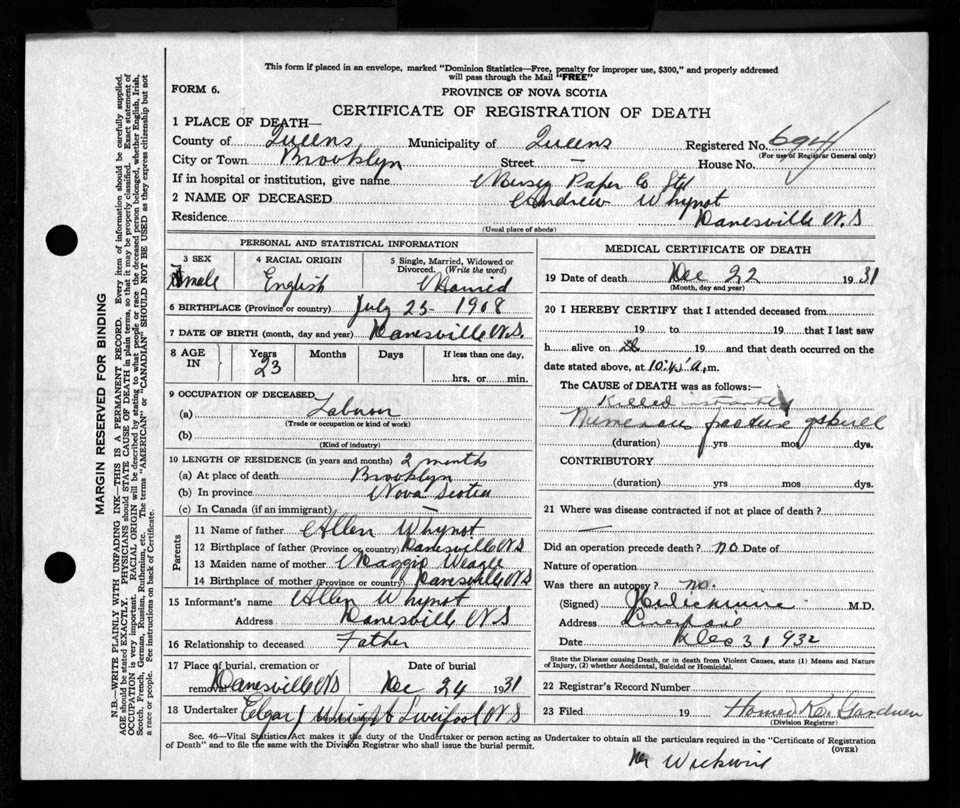 This form if placed in an envelope, marked "Dominion Statistics—Free, penalty for improper use, $300," and properly addressed
will pass through the Mail "FREE"
FORM 6.
PROVINCE OF NOVA SCOTIA
CERTIFICATE OF REGISTRATION OF DEATH
1 PLACE OF DEATH—
County of Queens Municipality of Queens Registered No. 694
(For use of Registrar General only)
City or Town Brooklyn Street — House No.
If in hospital or institution, give name Mersey Paper Co Ltd
2 NAME OF DECEASED Andrew Whynot
Residence Danesville N.S
(Usual place of abode)
PERSONAL AND STATISTICAL INFORMATION
3 SEX
male
4 RACIAL ORIGIN
English
5 Single, Married, Widowed or
Divorced. (Write the word)
Married
6 BIRTHPLACE (Province or country) July 25- 1908
7 DATE OF BIRTH (month, day and year) Danesville N.S.
8 AGE IN
Years Months Days If less than one day,
23
hrs. or min.
9 OCCUPATION OF DECEASED
(a) Laborer
(Trade or occupation or kind of work)
(b)
(Kind of industry)
10 LENGTH OF RESIDENCE (in years and months) 2 months
(a) At place of death Brooklyn
(b) In province Nova Scotia
(c) In Canada (if an immigrant) —
Parents
11 Name of father Allen Whynot
12 Birthplace of father (Province or country) Danesville N S
13 Maiden name of mother Maggie Weagle
14 Birthplace of mother (Province or country) Danesville N S
15 Informant's name Allen Whynot
Address Danesville N S
16 Relationship to deceased Father
17 Place of burial, cremation or
removal Danesville N S
Date of burial
Dec 24 1931
18 Undertaker Liverpool N S
MEDICAL CERTIFICATE OF DEATH
19 Date of death Dec 22 1931
(Month, day and year)
20 I HEREBY CERTIFY that I attended deceased from
19 to 19 that I last saw
h alive on 19 and that death occurred on the
date stated above, at A.m.
The CAUSE of DEATH was as follows:—
Killed instantly
Numerous fracture of skull
(duration) yrs mos dys.
CONTRIBUTORY
(duration) yrs mos dys.
21 Where was disease contracted if not at place of death?
—
Did an operation precede death? no Date of
Nature of operation
Was there an autopsy? no.
(Signed) M.D.
Address Liverpool
Date Dec 31 932
State the Disease causing Death, or in death from Violent Causes, state (1) Means and Nature
of Injury, (2) whether Accidental, Suicidal or Homicidal.
22 Registrar's Record Number
23 Filed 19 Gardner
(Division Registrar)
Sec. 46—Vital Statistics Act makes it the duty of the Undertaker or person acting as Undertaker to obtain all the particulars required in the "Certificate of Registration
of Death" and to file the same with the Division Registrar who shall issue the burial permit.
(OVER)
Wickwire
MARGIN RESERVED FOR BINDING
N.B.—WRITE PLAINLY WITH UNFADING INK—THIS IS A PERMANENT RECORD. Every item of information should be carefully supplied.
AGE should be stated EXACTLY. PHYSICIANS should STATE CAUSE OF DEATH in plain terms, so that it may be properly classified. Exact statement of
OCCUPATION is very important. RACIAL ORIGIN will be described by stating to what people or race the deceased person belonged, whether English, Irish,
Scotch, French, German, Russian, Ruthenian, etc. The terms "AMERICAN" or "CANADIAN" SHOULD NOT BE USED as they express citizenship but not
a race or people. See instructions on back of Certificate.